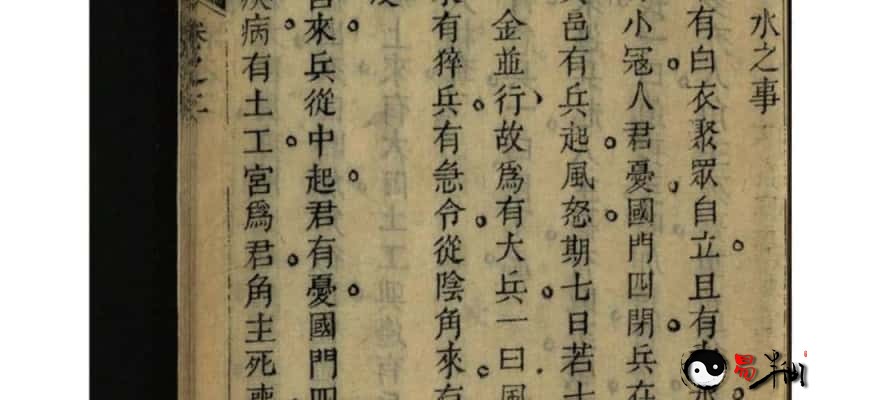 水之事
有白衣聚眾自立且有
小冦人君憂國門四閉兵在
邑有兵起風怒期七日若
金並行故爲有大兵一曰風
有猝兵有急令從陰角來有
來兵從中起君有憂國門四
病有土工宮爲君角主死喪
卷之二
易